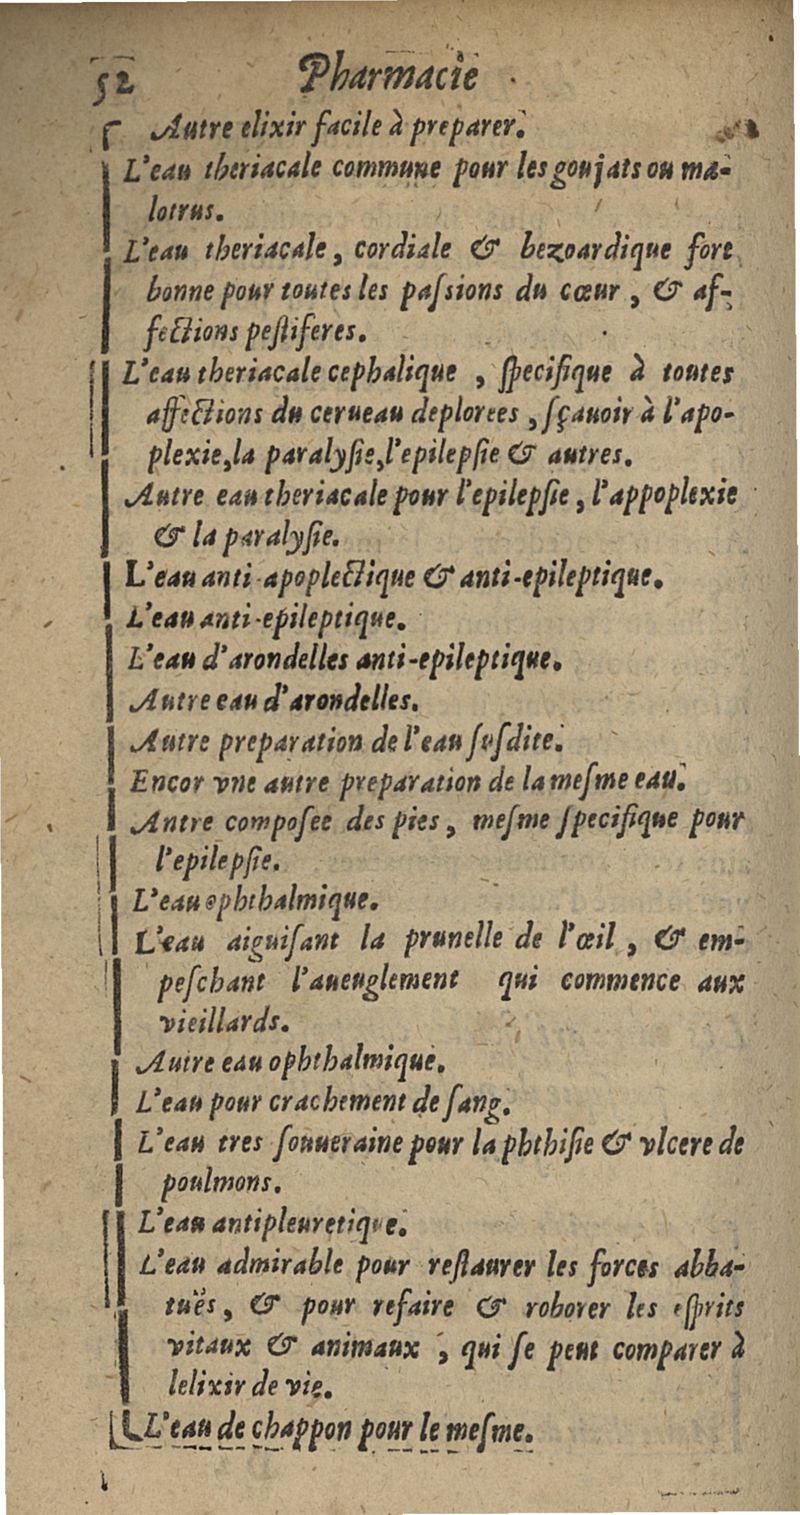 52 Pharmacie
Autre elixir facile à preparer.
L'eau theriacale commune pour les goujats ou ma-
lotrus.
L'eau theriacale, cordiale & bezoardique fort
bonne pour toutes les paſsions du cœur, & af-
fections peſtiferes.
L'eau theriacale cephalique, ſpecifique à toutes
affections du cerueau deplorees, ſçauoir à l'apo-
plexie, la paralyſie, l'epilepſie & autres.
Autre eau theriacale pour l'epilepſie, l'appoplexie
& la paralyſie.
L'eau anti-apoplectique & anti-epileptique.
L'eau anti-epileptique.
L'eau d'arondelles anti-epileptique.
Autre eau d'arondelles.
Autre preparation de l'eau ſuſdite.
Encor vne autre preparation de la meſme eau.
Autre compoſee des pies, meſme ſpecifique pour
l'epilepſie.
L'eau ophthalmique.
L'eau aiguiſant la prunelle de l'œil, & em-
peſchant l'aueuglement qui commence aux
vieillards.
Autre eau ophthalmique.
L'eau pour crachement de ſang.
L'eau tres ſouueraine pour la phthiſie & vlcere de
poulmons.
L'eau antipleuretique.
L'eau admirable pour reſtaurer les forces abba-
tuës, & pour refaire & roborer les eſprits
vitaux & animaux, qui ſe peut comparer à
lelixir de vie.
L'eau de chappon pour le meſme.